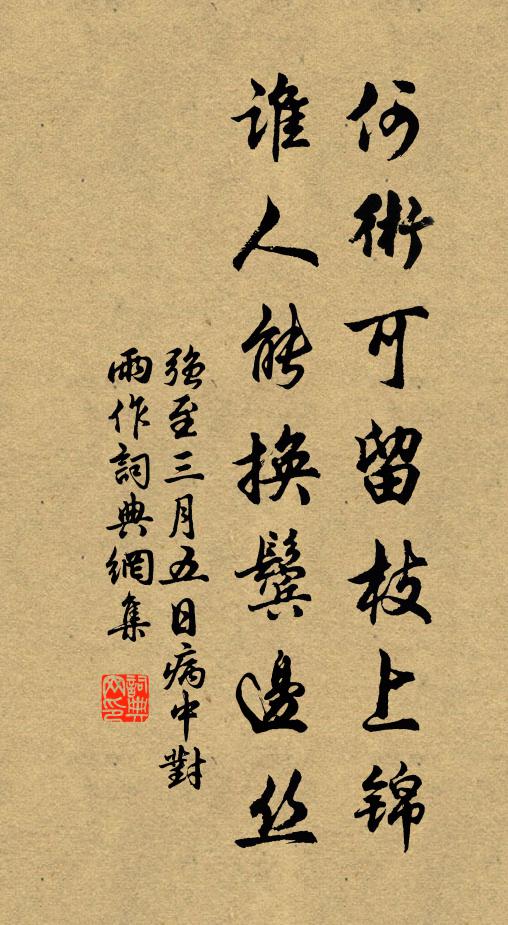 何術可留枝上锦
誰人能换鬓邊丝
强至三月五日病中對
雨作詞典網集
詞典